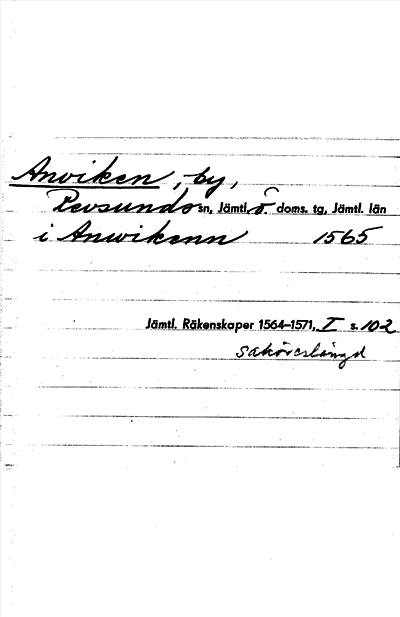 Anviken, by,
Revsunds sn, Jämtl. Ö. doms. tg, Jämtl. län
i Anwikenn 1565
Jämtl. Räkenskaper 1564–1571, I s. 102
saköreslängd